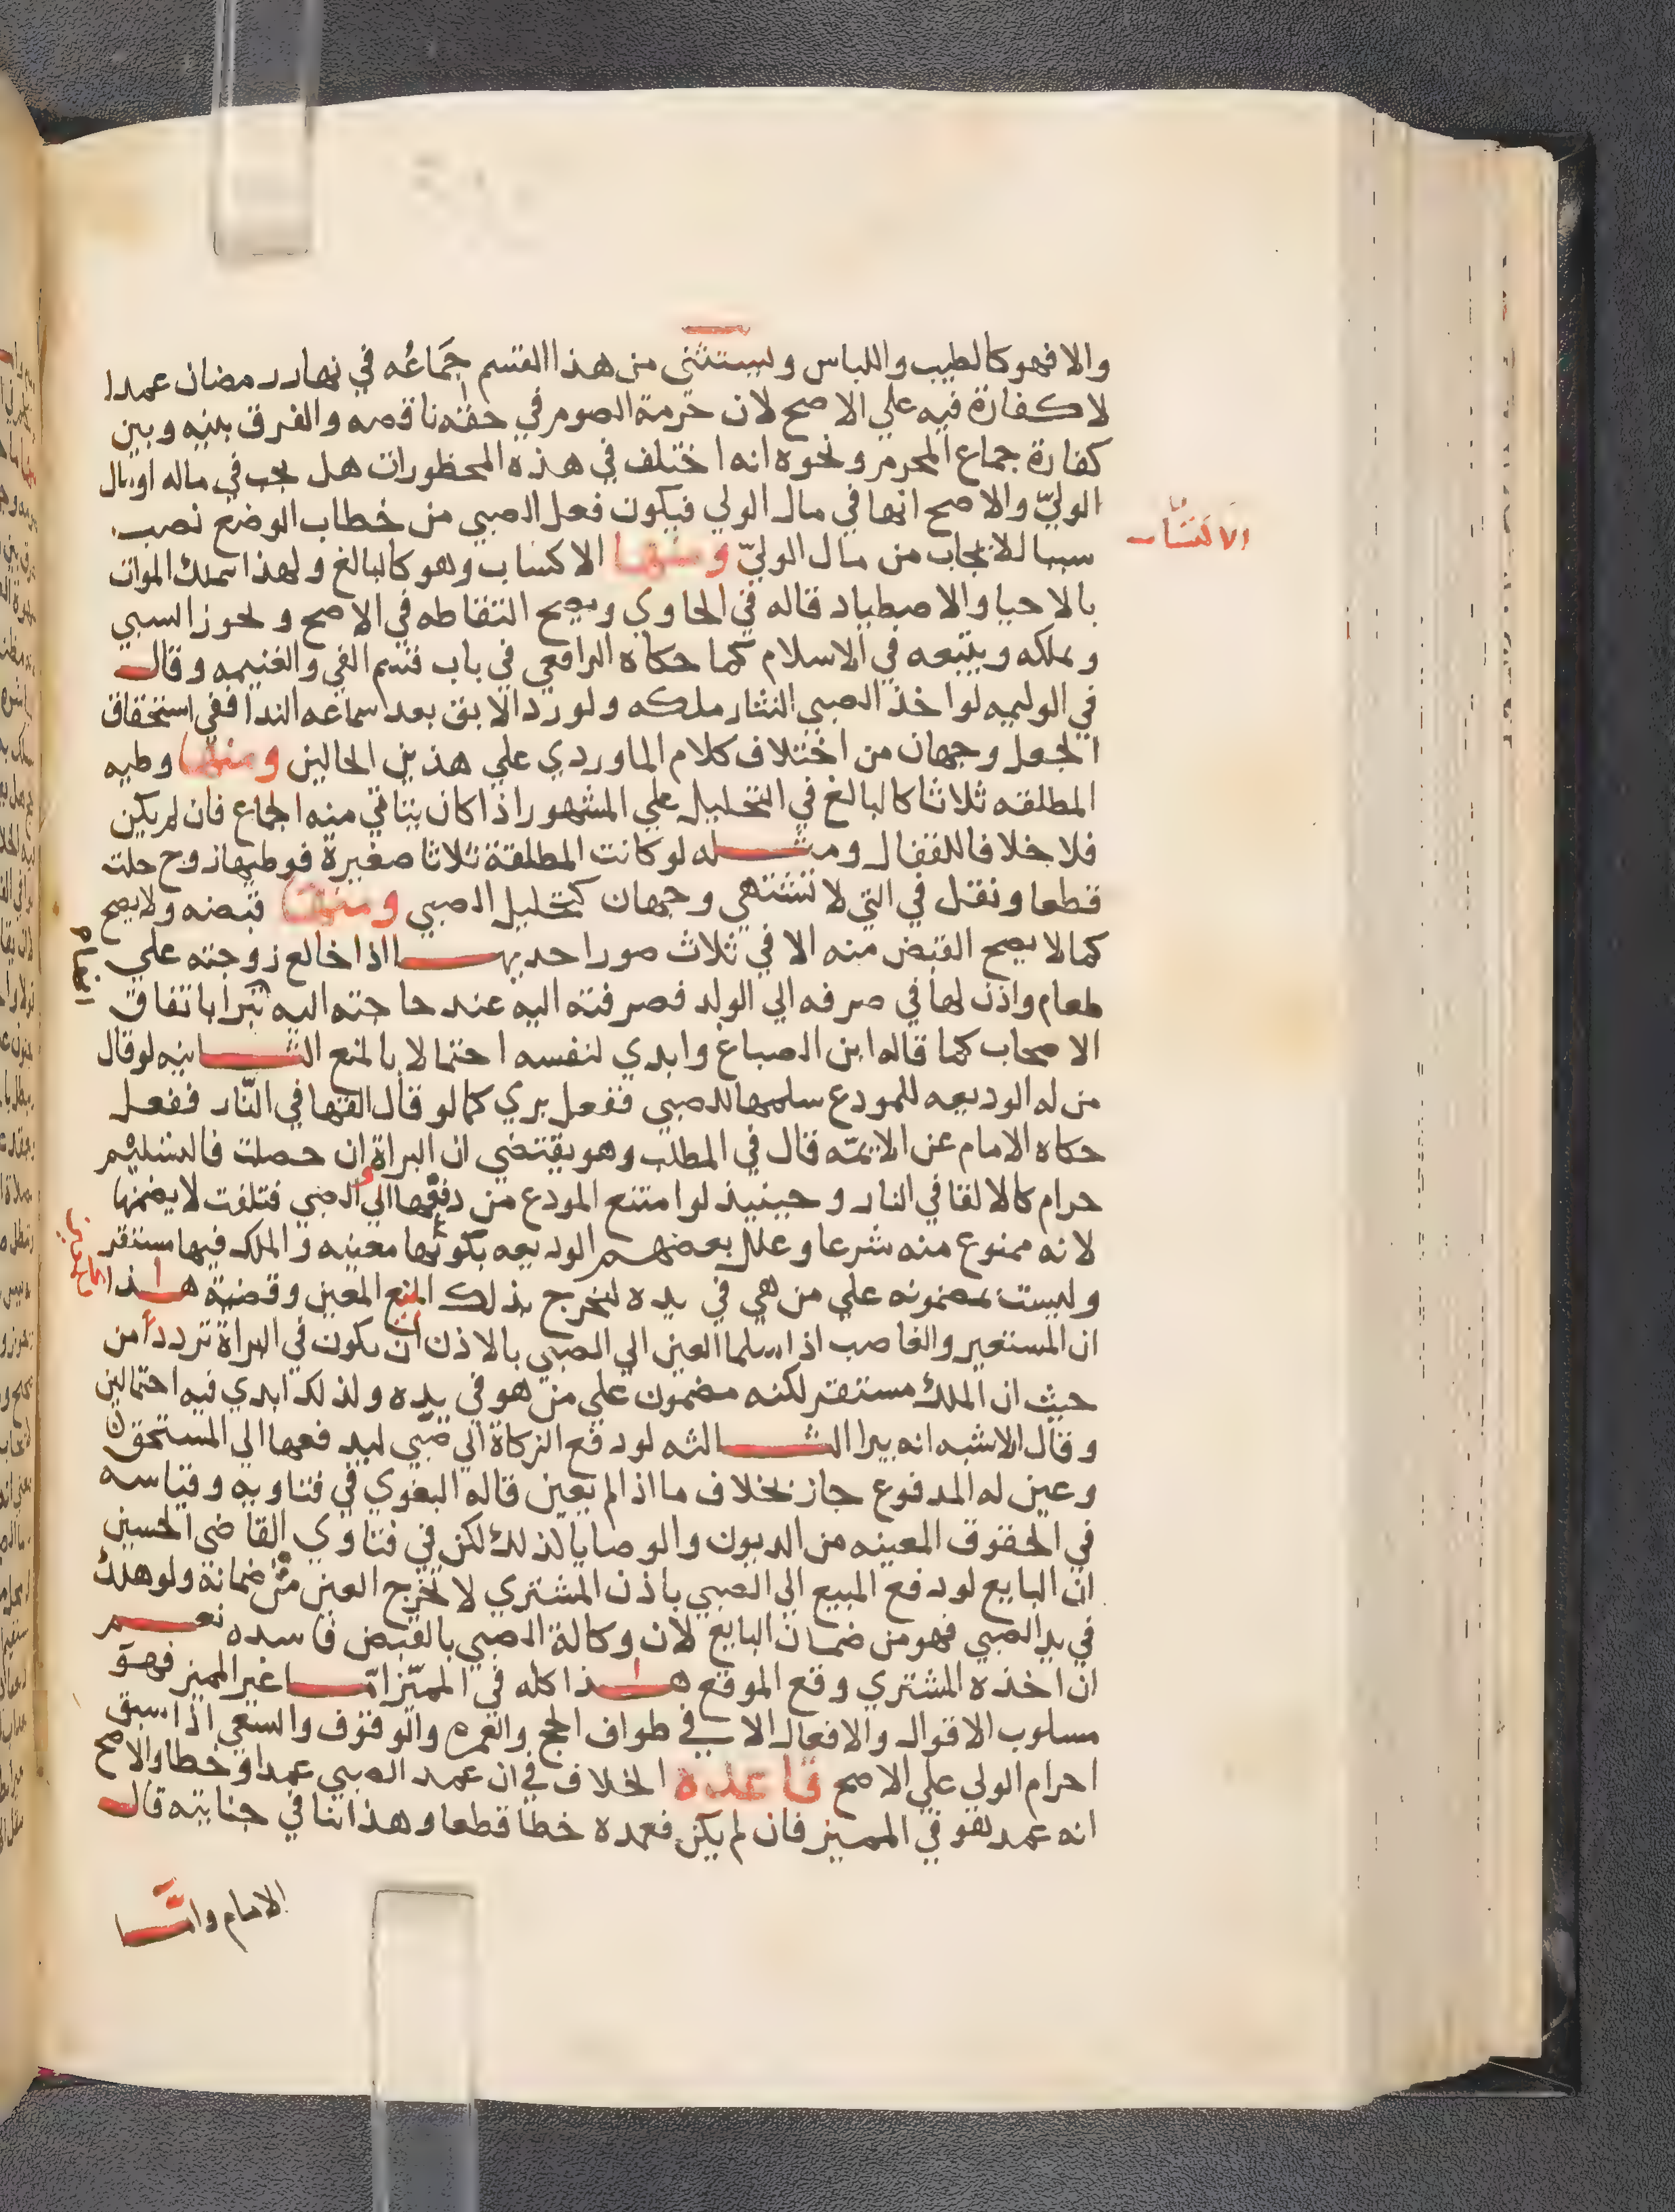 والا فهو كالطيب واللباس ويستثنى من هذا القسم جماعُه في نهار رمضان عمدا
لا كفارة فيه علي الاصح لان حرمة الصوم في حقه ناقصه والفرق بينه وبين
كفارة جماع المحرم ونحوه انه اختلف في هذه المحظورات هل يجب في ماله او مال
الوليّ والاصح انها في مال الولي فيكون فعل الصبي من خطاب الوضع نصب
سببا للايجاب من مال الوليّ ومنها الاكتساب وهو كالبالغ ولهذا يملك الموات
بالاحيا والاصطياد قاله في الحاوي ويصح التقاطه في الاصح ويجوز السبي
ويملكه ويتبعه في الاسلام كما حكاه الرافعي في باب قسم الفي والغنيمه وقال
في الوليمه لو اخذ الصبي النثار ملكه ولو رد الابق بعد سماعه الندا ففي استحقاق
الجعل وجهان من اختلاف كلام الماوردي علي هذين الحالين ومنها وطيه
المطلقه ثلاثا كالبالغ في التحليل علي المشهور اذا كان يتاتي منه الجماع فان لم يكن
فلا خلافا للقفال ومثله لو كانت المطلقة ثلاثا صغيرة فوطيها زوج حلت
قطعا ونقل في التي لا تشتهي وجهان كتحليل الصبي ومنها قبضه ولا يصح
كما لا يصح القبض منه الا في ثلاث صور احديها اذا خالع زوجته علي
طعام واذن لها في صرفه الي الولد فصرفته اليه عند حاجته اليه تبرا باتفاق
الاصحاب كما قاله ابن الصباغ وابدي لنفسه احتمالا بالمنع الثانيه لو قال
من له الوديعه للمودع سلمها للصبي ففعل بري كما لو قال القها في النّار ففعل
حكاه الامام عن الايمّه قال في المطلب وهو يقتضي ان البراة ان حصلت فالتسليم
حرام كالالقا في النار وحينيذ لو امتنع المودع من دفعها الي الصبي فتلفت لا يضمنها
لانه ممنوع منه شرعا وعلل بعضهم الوديعه بكونها معينه والملك فيها مستقر
وليست مضمونه علي من هي في يده ليخرج بذلك المبيع المعين وقضية هذا
ان المستعير والغاصب اذا سلما العين الي الصبي بالاذن ان يكون في البراة تردداً من
حيث ان الملك مستقر لكنه مضمون علي من هو في يده ولذلك ابدي فيه احتمالين
وقال الاشبه انه يبرا الثالثه لو دفع الزكاة الي صبي ليدفعها الي المستحق
وعين له المدفوع جاز بخلاف ما اذا لم يعين قاله البغوي في فتاويه وقياسه
في الحقوق المعينه من الديون والوصايا كذلك لكن في فتاوي القاضي الحسين
ان البايع لو دفع المبيع الي الصبي باذن المشتري لا تخرج العين من ضمانه ولو هلك
في يد الصبي فهو من ضمان البايع لان وكالة الصبي بالقبض فاسده نعم
ان اخذه المشتري وقع الموقع هذا كله في المميّز امّا غير المميز فهو
مسلوب الاقوال والافعال الا في طواف الحج والعمره والوقوف والسعي اذا سبق
احرام الولي علي الاصح قاعدة الخلاف في ان عمد الصبي عمد او خطا والاصح
انه عمد لهو في المميز فان لم يكن فعمده خطا قطعا وهذا اننا في جنايته قال
الامام وامّا